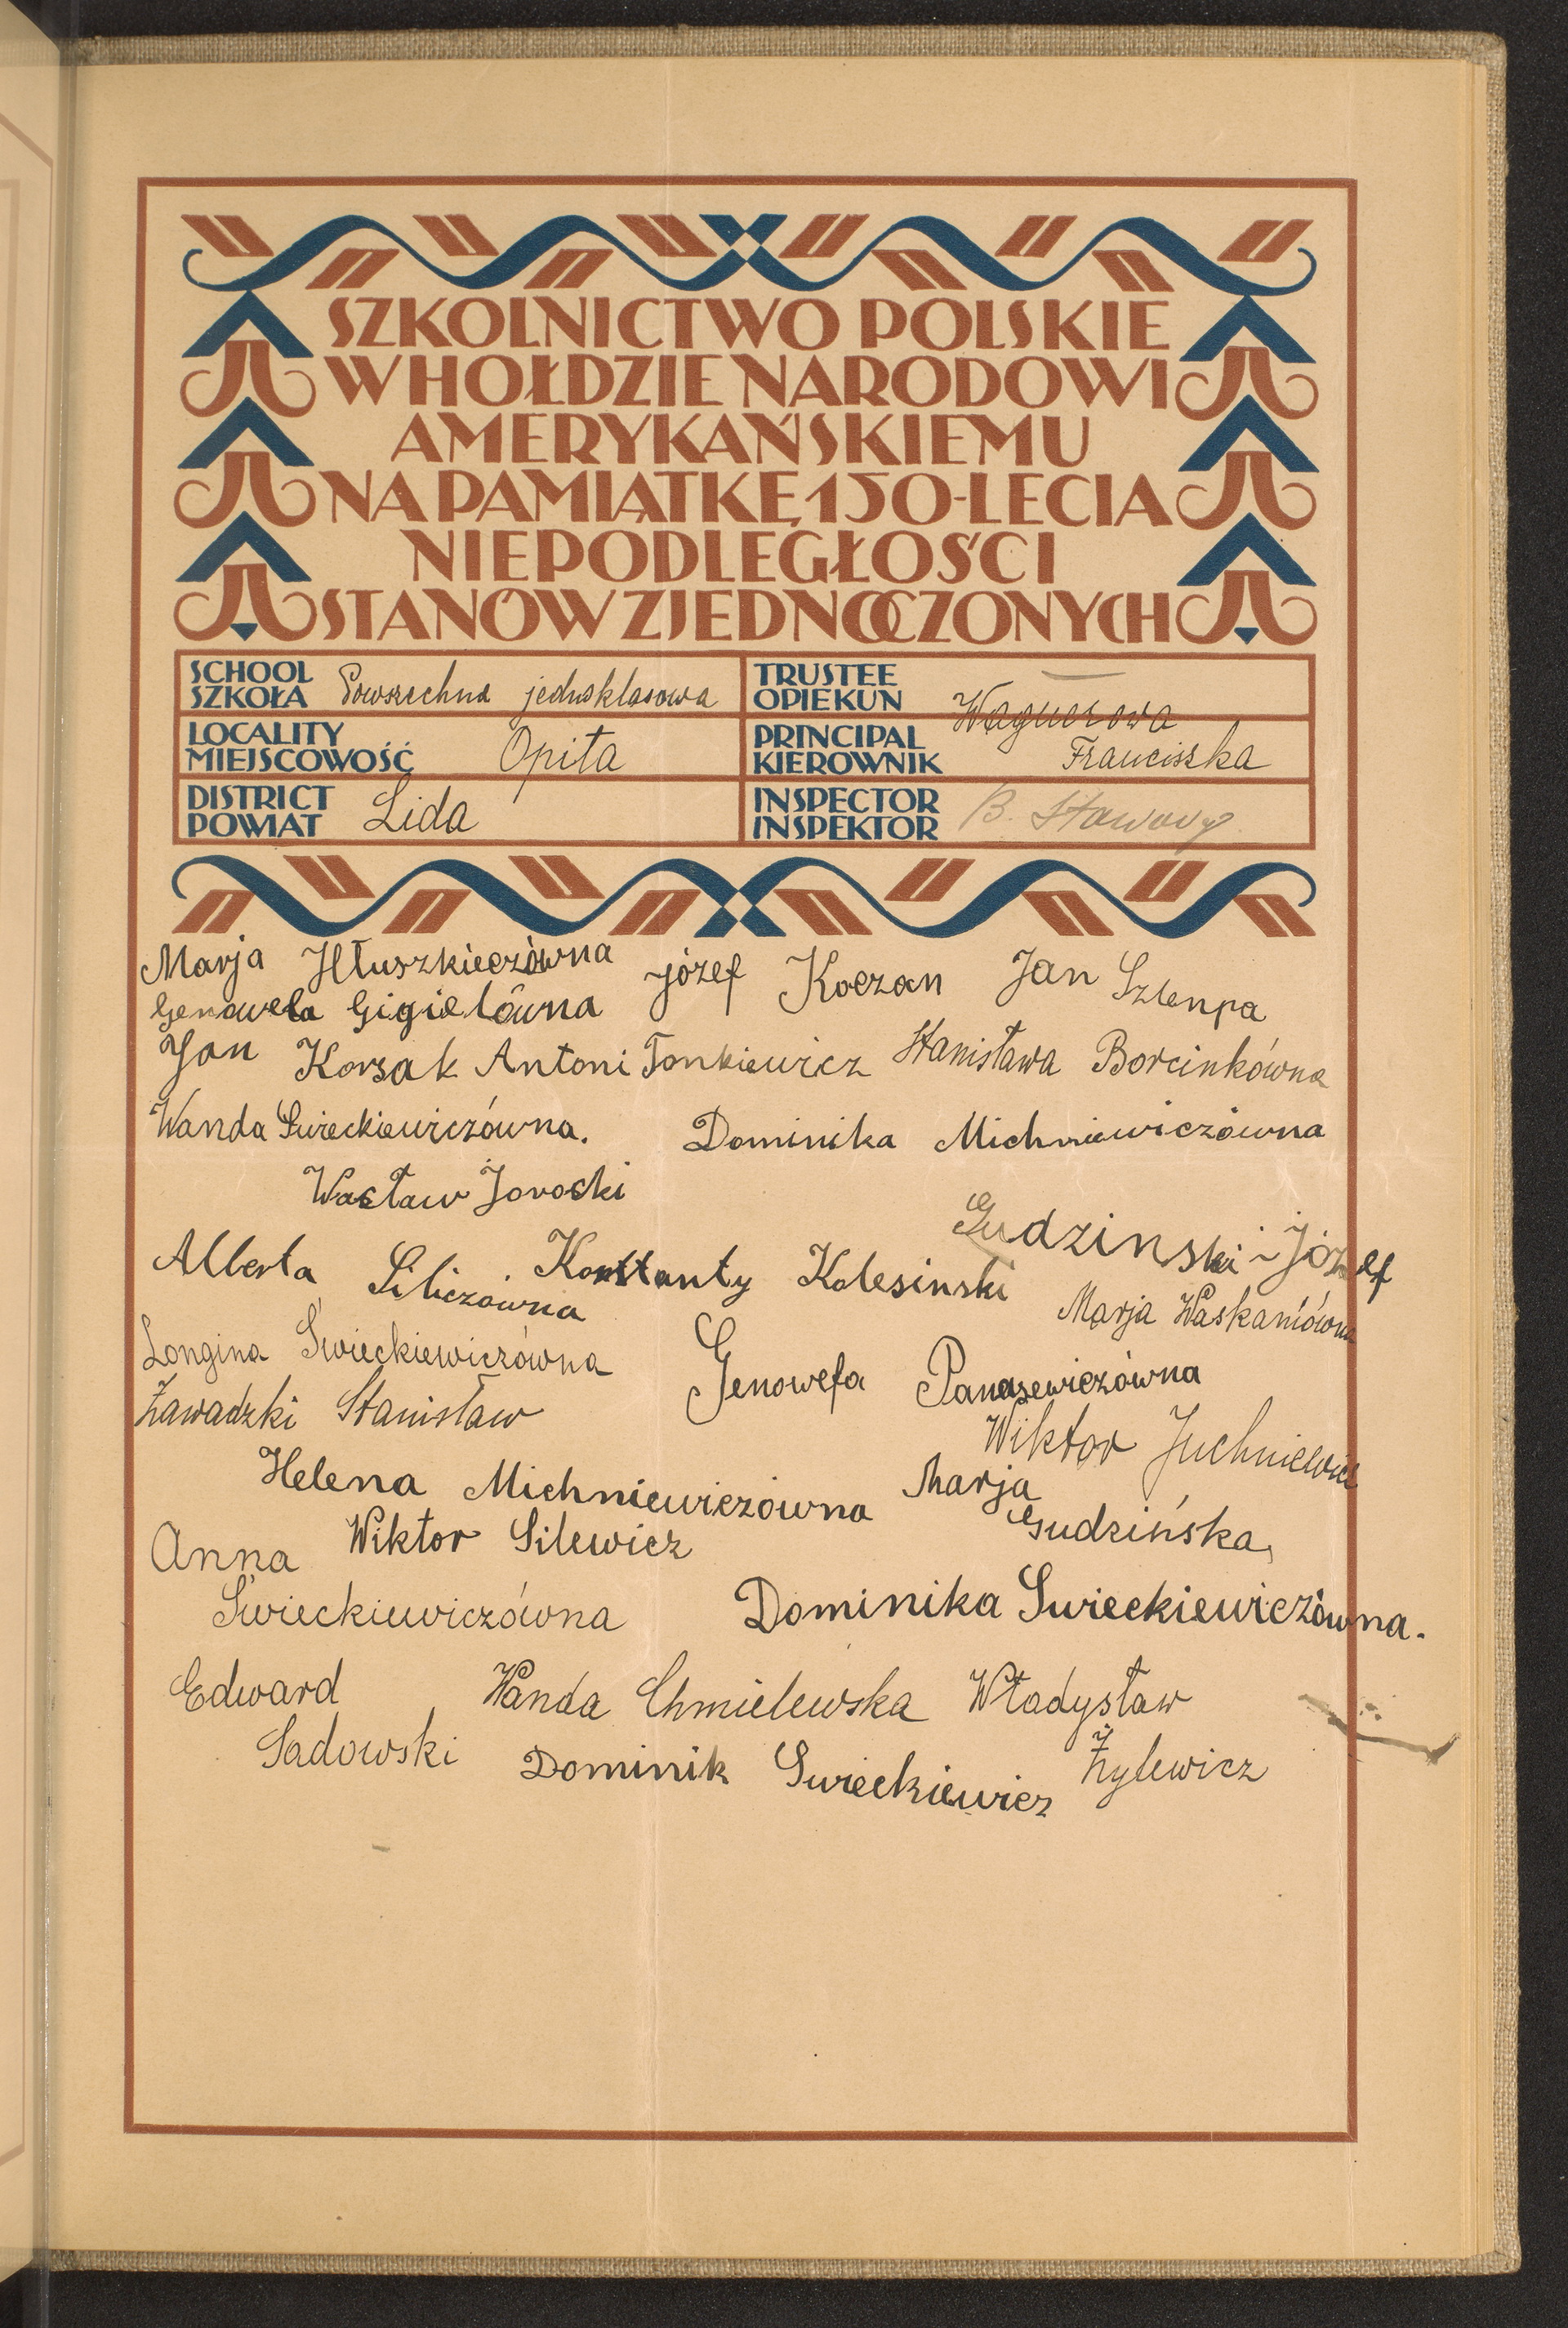 SZKOLNICTWO POLSKIE
W HOŁDZIE NARODOWI
AMERYKAŃSKIEMU
NA PAMIĄTKĘ 150-LECIA
NIEPODLEGŁOŚCI
STANÓW ZJEDNOCZONYCH
SCHOOL
SZKOŁA Powszechna jednoklasowa
LOCALITY
MIEJSCOWOŚĆ Opita
DISTRICT
POWIAT Lida
TRUSTEE
OPIEKUN —
PRINCIPAL
KIEROWNIK Wagnerowa
Franciszka
INSPECTOR
INSPEKTOR B. Stawowy
Marja Hłuszkieczówna Józef Koczan Jan Szlenpa
Genowefa Gigielówna
Jan Korsak Antoni Tonkiewicz Stanisława Borcinkówna
Wanda Swieckiewiczówna. Dominika Michniewiczówna
Wacław Jorocki
Gudzinski-Józef
Alberta Siliczówna Konstanty Kolesinski
Marja Waskaniówna
Longina Świeckiewiczówna Genowefa Panasewiczówna
Zawadzki Stanisław
Wiktor Juchniewicz
Helena Michniewiczówna Marja
Gudzińska
Anna Wiktor Silewicz
Świeckiewiczówna Dominika Swieckiewiczówna.
Edward Wanda Chmielewska Władysław
Sadowski Dominik Swieckiewicz Żylewicz